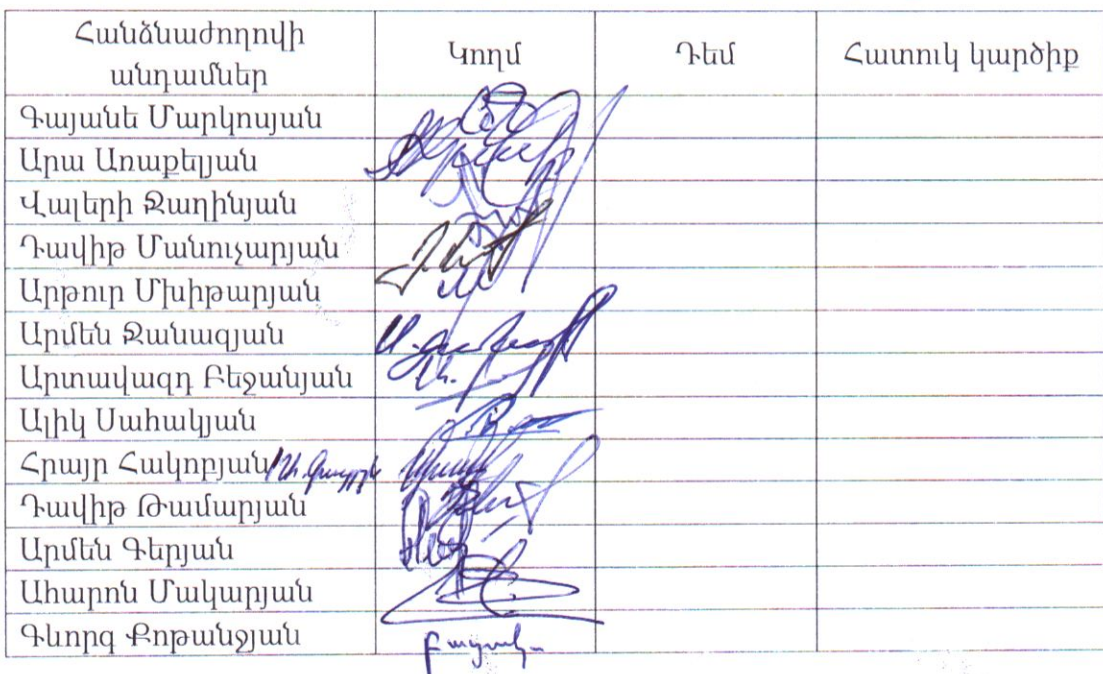 Հանձնաժողովի
անդամներ
Կողմ
Դեմ
Հատուկ կարծիք
Գայանե Մարկոսյան
Արա Առաքելյան
Վալերի Ջաղինյան
Դավիթ Մանուչարյան
Արթուր Մխիթարյան
Արմեն Ջանազյան
Արտավազդ Բեջանյան
Ալիկ Սահակյան
Հրայր Հակոբյան
Դավիթ Թամարյան
Արմեն Գերյան
Ահարոն Մակարյան
Գևորգ Քոթանջյան
բացակա